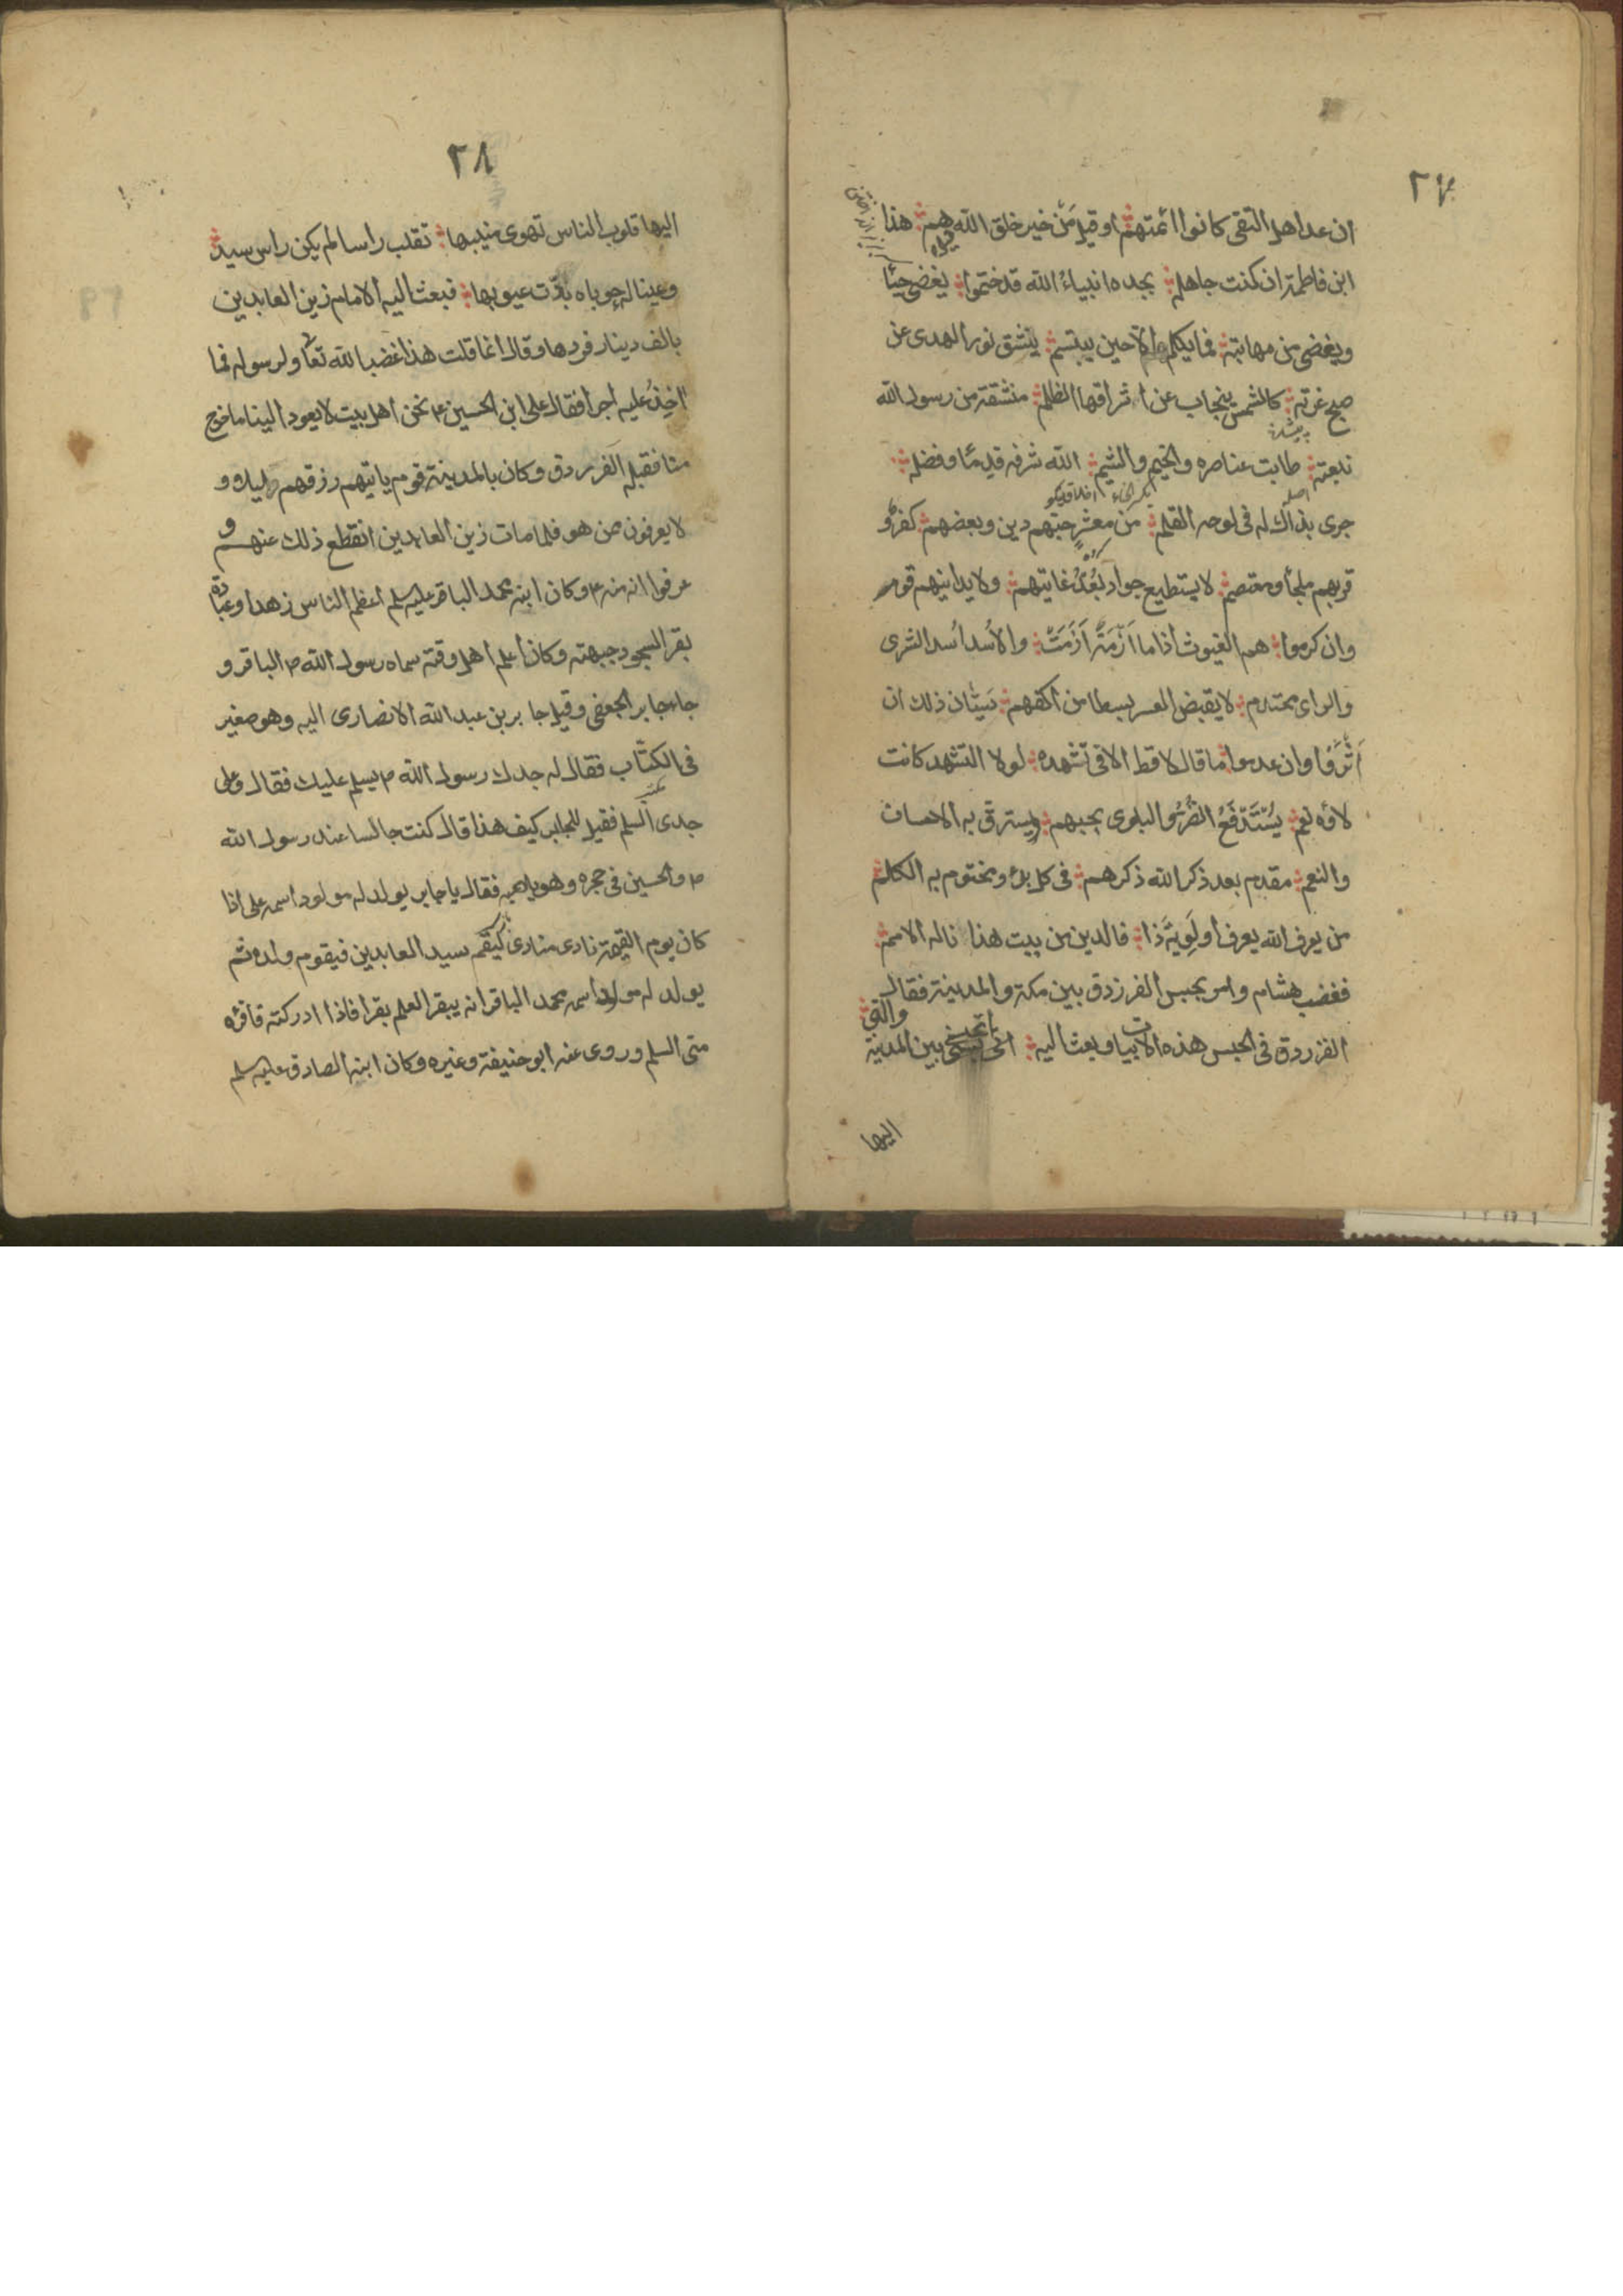 ٢٧
ان عد اهل التقى كانوا ائمتهم او قيل من خير خلق الله قيل هم هذا
ابن فاطمة ان كنت جاهله بجده انبياء الله قد ختموا يغضى حيًا
ويغضى من مهابته فما يكلم الا حين يبتسم ينشق نور الهدى عن
صبح غرته كالشمس ينجاب عن اشراقها الظلم منشقة من رسول الله
نبعته طابت عناصره والخيم والشيم الله شرفه قدمًا وفضله
اصل
جرى بذاك له فى لوحه القلم من معشر حبهم دين وبعضهم كفر و
قربهم ملجأ ومعتصم لا يستطيع جواد بُعْدُ غايتهم ولا يدانيهم قوم
وان كرموا هم الغيوث اذا ما اَزْمَةٌ اَزَمَتْ والأُسد أُسد الشرى
والراى محتدم لا يقبض العسر بسطا من اكفهم سيّان ذلك ان
اَثْرَوْا وان عدموا ما قال لا قط الا فى تشهده لولا التشهد كانت
لاؤه نعم يُسْتَدْفَعُ الضُرُّ والبلوى بحبهم ويسترق به الاحسان
والنعم مقدم بعد ذكر الله ذكرهم فى كل بدء ومختوم به الكلم
من يعرف الله يعرف أَوَّلِيَّةَ ذا فالدين من بيت هذا ناله الامم
فغضب هشام وامر بحبس الفرزدق بين مكة والمدينة فقال
الفرزدق فى الحبس هذه الابيات وبعث اليه اتحبسنى بين المدينة والتى
اليها
٢٨
اليها قلوب الناس تهوى منيبها تقلب راسا لم يكن راس سيد
وعينا له حوباه بدّت عيوبها فبعث اليه الامام زين العابدين
بالف دينار فردها وقال انما قلت هذا غضبا لله تعا ولرسوله فما
اخذ عليه اجرا فقال على ابن الحسين ع نحن اهل بيت لا يعود الينا ما خرج
منا فقبله الفرزدق وكان بالمدينة قوم ياتيهم رزقهم ليلا و
لا يعرفون من هو فلما مات زين العابدين انقطع ذلك عنهم و
عرفوا انه منه ع وكان ابنه محمد الباقر عليه سلم اعظم الناس زهدا وعبادة
بقر السجود جبهته وكان اعلم اهل وقته سماه رسول الله ص الباقر و
جاء جابر الجعفى وقيل جابر بن عبد الله الانصارى اليه وهو صغير
فى الكتّاب فقال له جدك رسول الله ص يسلم عليك فقال وعلى
جدى السلم فقيل لجابر كيف هذا قال كنت جالسا عند رسول الله
ص والحسين فى حجره وهو يلاعبه فقال يا جابر يولد له مولود اسمه على اذا
كان يوم القيمة نادى منادى ليقم سيد العابدين فيقوم ولده ثم
يولد له مولود اسمه محمد الباقر انه يبقر العلم بقرا فاذا ادركته فاقرئه
منى السلم وروى عنه ابو حنيفة وغيره وكان ابنه الصادق عليه سلم